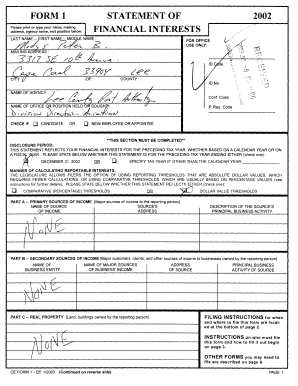 FORM 1 STATEMENT OF 2002
Please print or type your name, mailing address, agency name, and position below. FINANCIAL INTERESTS
LAST NAME -- FIRST NAME -- MIDDLE NAME
Peter B.
FOR OFFICE USE ONLY:
MAILING ADDRESS
3317 SE 10th Avenue
Cape Coral 33904 Lee
CITY ZIP COUNTY
RECEIVED
ID Code
ID No.
Conf. Code
P. Req. Code
NAME OF AGENCY
Lee County Port Authority
NAME OF OFFICE OR POSITION HELD OR SOUGHT
Division Director - Aviation
CHECK IF CANDIDATE OR NEW EMPLOYEE OR APPOINTEE
*THIS SECTION MUST BE COMPLETED*
DISCLOSURE PERIOD:
THIS STATEMENT REFLECTS YOUR FINANCIAL INTERESTS FOR THE PRECEDING TAX YEAR, WHETHER BASED ON A CALENDAR YEAR OR ON
A FISCAL YEAR. PLEASE STATE BELOW WHETHER THIS STATEMENT IS FOR THE PRECEDING TAX YEAR ENDING EITHER (check one):
DECEMBER 31, 2002 OR SPECIFY TAX YEAR IF OTHER THAN THE CALENDAR YEAR:
MANNER OF CALCULATING REPORTABLE INTERESTS:
THE LEGISLATURE ALLOWS FILERS THE OPTION OF USING REPORTING THRESHOLDS THAT ARE ABSOLUTE DOLLAR VALUES, WHICH
REQUIRES FEWER CALCULATIONS, OR USING COMPARATIVE THRESHOLDS, WHICH ARE USUALLY BASED ON PERCENTAGE VALUES (see
instructions for further details). PLEASE STATE BELOW WHETHER THIS STATEMENT REFLECTS EITHER (check one):
COMPARATIVE (PERCENTAGE) THRESHOLDS OR DOLLAR VALUE THRESHOLDS
PART A -- PRIMARY SOURCES OF INCOME [Major sources of income to the reporting person]
NAME OF SOURCE OF INCOME SOURCE'S ADDRESS DESCRIPTION OF THE SOURCE'S PRINCIPAL BUSINESS ACTIVITY
NONE
PART B -- SECONDARY SOURCES OF INCOME [Major customers, clients, and other sources of income to businesses owned by the reporting person]
NAME OF BUSINESS ENTITY NAME OF MAJOR SOURCES OF BUSINESS' INCOME ADDRESS OF SOURCE PRINCIPAL BUSINESS ACTIVITY OF SOURCE
NONE
PART C -- REAL PROPERTY [Land, buildings owned by the reporting person]
NONE
FILING INSTRUCTIONS for when and where to file this form are located at the bottom of page 2.
INSTRUCTIONS on who must file this form and how to fill it out begin on page 3.
OTHER FORMS you may need to file are described on page 6.
CE FORM 1 - Eff. 1/2003 (Continued on reverse side) PAGE 1